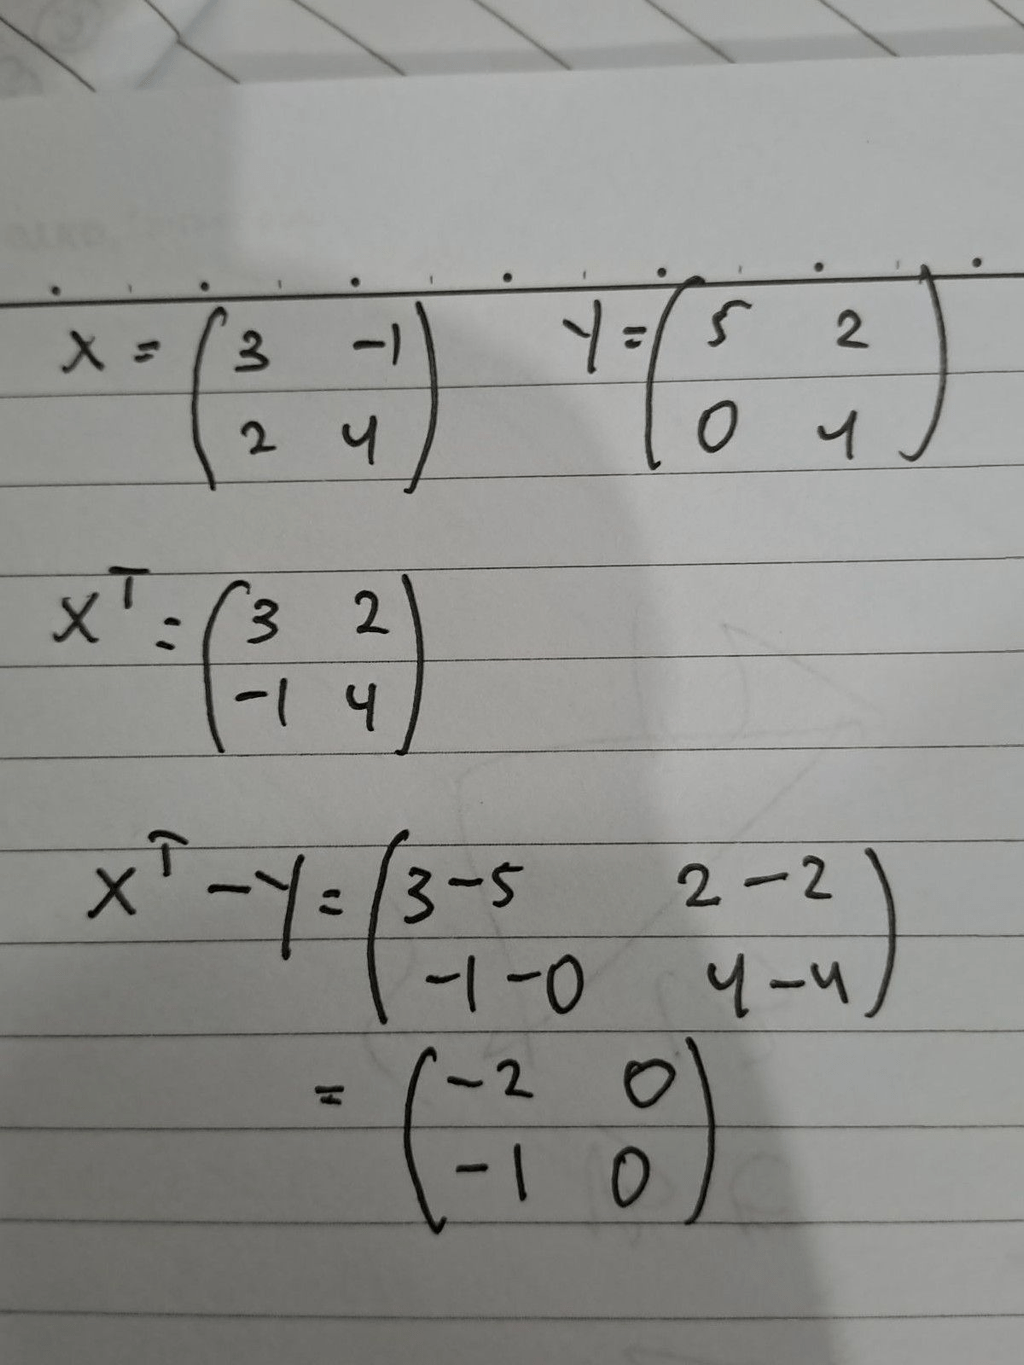 X = (3 -1) Y = (5 2)
(2 4) (0 4)
X^T = (3 2)
(-1 4)
X^T - Y = (3-5 2-2)
(-1-0 4-4)
= (-2 0)
(-1 0)